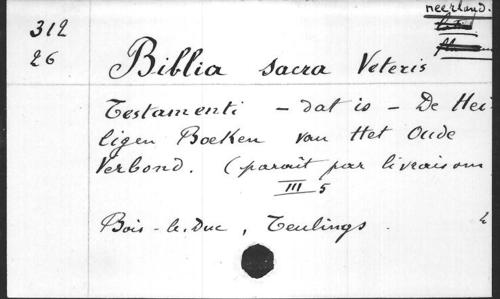 neerland.
312
26
Biblia sacra Veteris
Testamenti - dat is - De Hei
ligen Boeken van Het Oude
Verbond. (paraît par livraisons
III 5
Bois-le-Duc, Teulings.